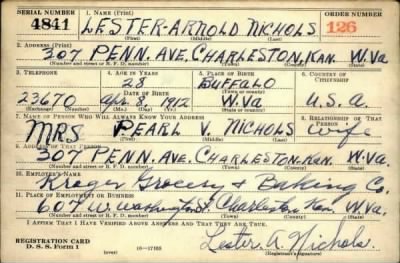 SERIAL NUMBER 1. NAME (Print) ORDER NUMBER
4841 LESTER-ARNOLD NICHOLS 126
(First) (Middle) (Last)
2. ADDRESS (Print)
307 PENN. AVE. CHARLESTON, KAN. W.Va
(Number and street or R. F. D. number) (Town) (County) (State)
3. TELEPHONE 4. AGE IN YEARS 5. PLACE OF BIRTH 6. COUNTRY OF CITIZENSHIP
28 BUFFALO
DATE OF BIRTH (Town or county)
23670 Apr. 8 1912 W.Va U.S.A.
(Exchange) (Number) (Mo.) (Day) (Yr.) (State or country)
7. NAME OF PERSON WHO WILL ALWAYS KNOW YOUR ADDRESS 8. RELATIONSHIP OF THAT PERSON
MRS PEARL V. NICHOLS wife
(Mr., Mrs., Miss) (First) (Middle) (Last)
9. ADDRESS OF THAT PERSON
307 PENN. AVE. CHARLESTON, KAN. W.Va.
(Number and street or R. F. D. number) (Town) (County) (State)
10. EMPLOYER'S NAME
Kroger Grocery & Baking Co.
11. PLACE OF EMPLOYMENT OR BUSINESS
607 W. Washington St. Charleston Kan. W.Va.
(Number and street or R. F. D. number) (Town) (County) (State)
I AFFIRM THAT I HAVE VERIFIED ABOVE ANSWERS AND THAT THEY ARE TRUE.
REGISTRATION CARD
D. S. S. Form 1 (over) 16—17105 Lester A. Nichols.
(Registrant's signature)